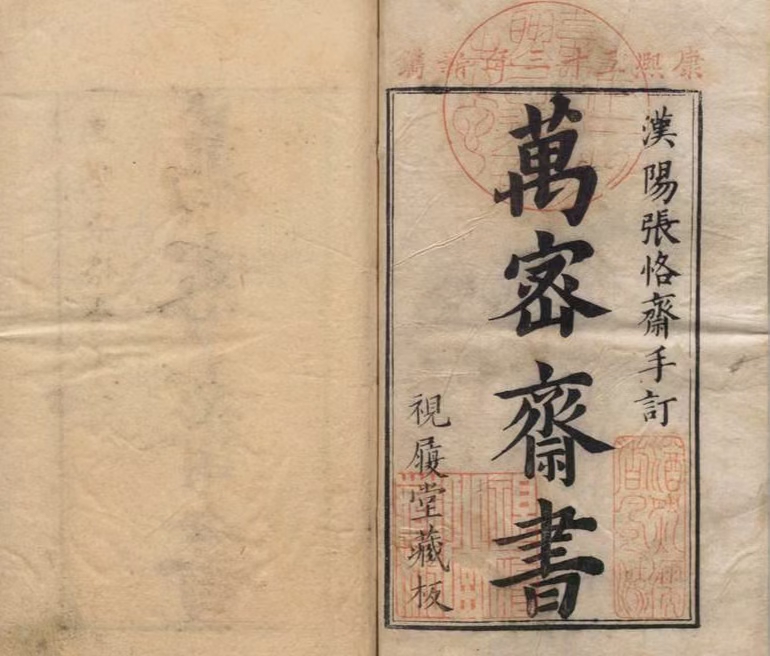 康熙五十三年新鐫
漢陽張恪齋手訂
萬密齋書
視履堂藏板